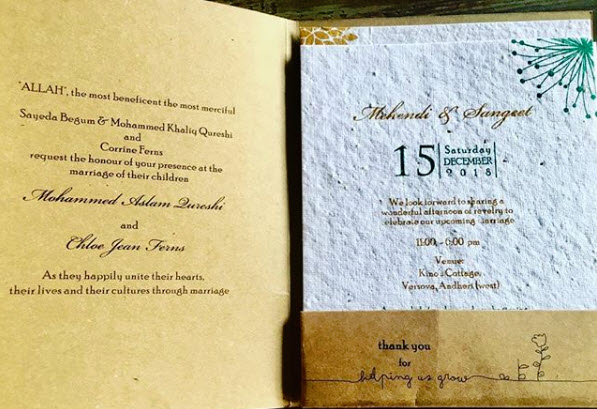 "ALLAH", the most beneficent the most merciful
Sayeda Begum & Mohammed Khaliq Qureshi
and
Corrine Ferns
request the honour of your presence at the
marriage of their children
Mohammed Aslam Qureshi
and
Chloe Jean Ferns
As they happily unite their hearts,
their lives and their cultures through marriage
Mehendi & Sangeet
15 Saturday
DECEMBER
2018
We look forward to sharing a
wonderful afternoon of revelry to
celebrate our upcoming marriage
11:00 - 6:00 pm
Venue:
Kino - Cottage,
Versova, Andheri (west)
thank you
for
helping us grow